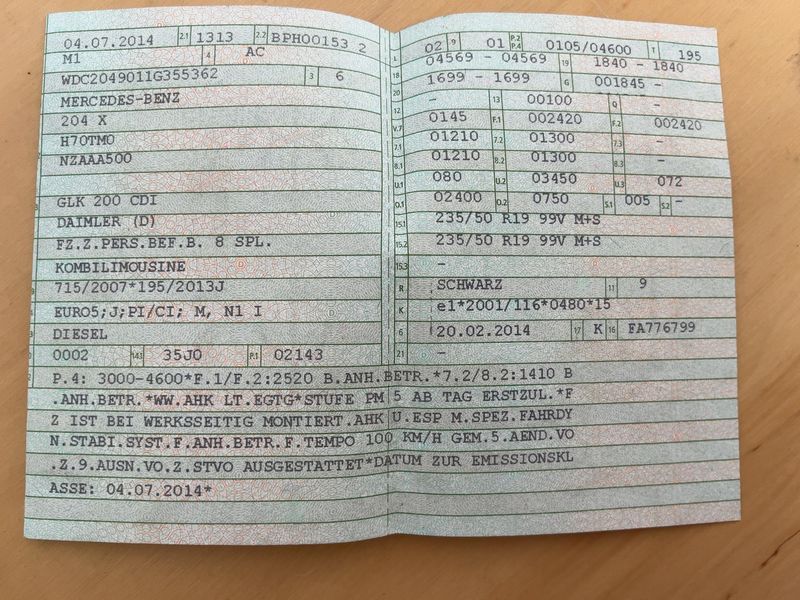 04.07.2014 2.1 1313 2.2 BPH00153 2
M1 4 AC
WDC2049011G355362 3 6
MERCEDES-BENZ
204 X
H70TM0
NZAAA500
GLK 200 CDI
DAIMLER (D)
FZ.Z.PERS.BEF.B. 8 SPL.
KOMBILIMOUSINE
715/2007*195/2013J
EURO5;J;PI/CI; M, N1 I
DIESEL
0002 14.1 35J0 P.1 02143
L 02 9 01 P.2 P.4 0105/04600 T 195
18 04569 - 04569 19 1840 - 1840
20 1699 - 1699 G 001845 -
12 - 13 00100 Q -
V.7 0145 F.1 002420 F.2 002420
7.1 01210 7.2 01300 7.3 -
8.1 01210 8.2 01300 8.3 -
U.1 080 U.2 03450 U.3 072
O.1 02400 O.2 0750 S.1 005 S.2 -
15.1 235/50 R19 99V M+S
15.2 235/50 R19 99V M+S
15.3 -
R SCHWARZ 11 9
K e1*2001/116*0480*15
6 20.02.2014 17 K 16 FA776799
21 -
P.4: 3000-4600*F.1/F.2:2520 B.ANH.BETR.*7.2/8.2:1410 B
.ANH.BETR.*WW.AHK LT.EGTG*STUFE PM 5 AB TAG ERSTZUL.*F
Z IST BEI WERKSSEITIG MONTIERT.AHK U.ESP M.SPEZ.FAHRDY
N.STABI.SYST.F.ANH.BETR.F.TEMPO 100 KM/H GEM.5.AEND.VO
.Z.9.AUSN.VO.Z.STVO AUSGESTATTET*DATUM ZUR EMISSIONSKL
ASSE: 04.07.2014*